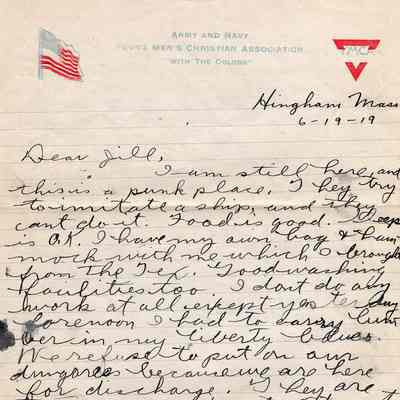 ARMY AND NAVY
YOUNG MEN'S CHRISTIAN ASSOCIATION
"WITH THE COLORS"
YMCA
Hingham Mass
6-19-19
Dear Jill,
I am still here, and
this is a punk place. They try
to imitate a ship, and they
cant do it. Food is good. Sleep
is O.K. I have my own bag & ham
mock with me which I brought
from the Tex. Good washing
facilities too. I dont do any
work at all except yesterday
forenoon I had to carry lum
ber in my liberty blues.
We refuse to put on our
dungarees because we are here
for discharge. They are